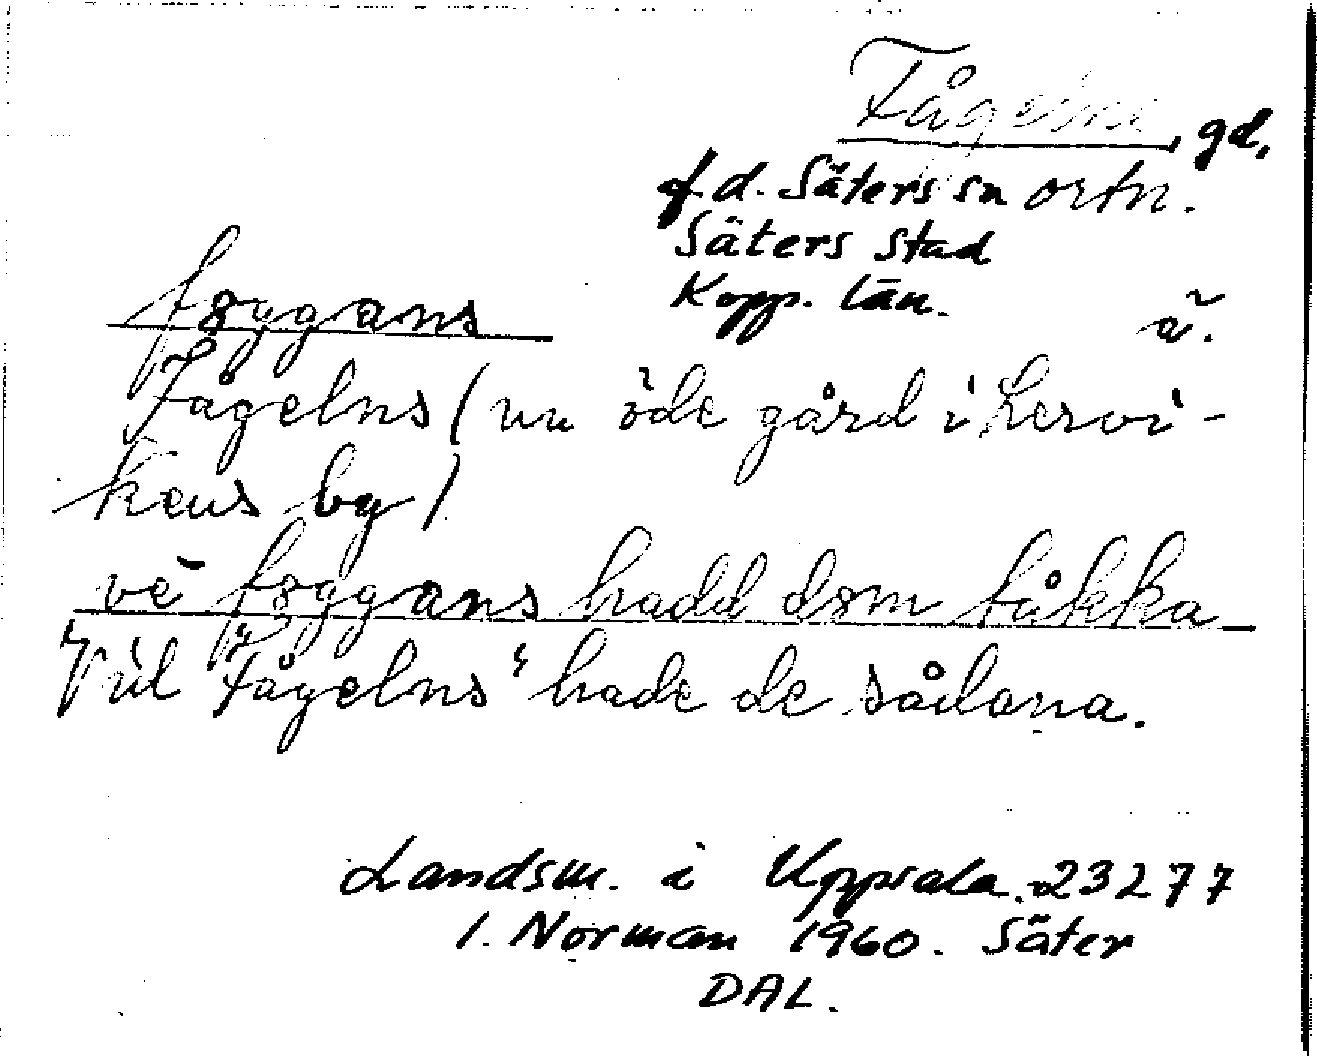 Fågelns, gd,
f.d. Säters sn ortn.
Säters stad
Kopp. län.
ä.
foggans
Fågelns (nu öde gård i Lervi-
kens by)
ve foggans hadd dom tåkka
Vid Fågelns hade de sådana.
Landsm. i Uppsala. 23277
I. Norman 1960. Säter
DAL.